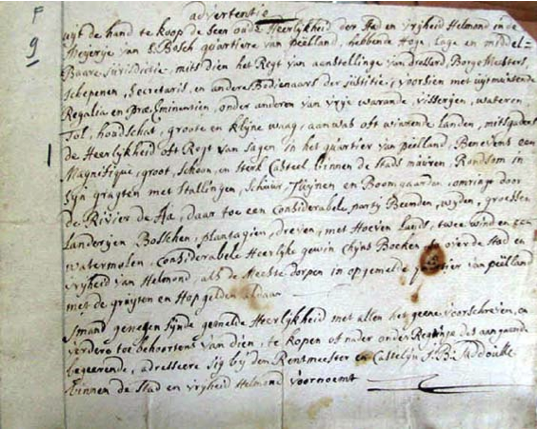 F
9
advertentie
uijt de hand te koop de seer oude Heerlijkheid der Stad en vrijheid Helmond in de
Meyerije van s Bosch quartiere van peelland, hebbende Hoge, lage en middel=
Baare Jurisdictie, mitsdien het Regt van aanstellinge van drossard, Borgemeesters,
Schepenen, Secretaris, en andere Bedienaars der Justitie; voorsien met uijtmuntende
Regalia en Præeminentien, onder anderen van vrije warande, visserijen, wateren,
Tol, houdschat, groote en klijne waag, aanwas oft winnende landen, mitsgaders
de Heerlijkheid oft Regt van Jagen in het quartier van peelland, Benevens een
Magnifique, groot, schoon, en sterk Casteel binnen de Stads mûren, Rondsom in
zijn gragten met Stallingen, Schuur, Tuijnen en Boomgaarden omringt door
de Rivier de Aa, daar toe een Considerabele party Beemden, wyden, groessen
Landerijen Bosschen, plantagien, dreven, met Hoeven Lands, twee wind en een
watermolen, considerabele Heerlijke gewin Chijns Boeken soo over de Stad en
vrijheid van Helmond, als de Meeste dorpen in opgemelde quartier van peelland
met de gruyten en Hopgelden aldaar
Imand genegen sijnde gemelde Heerlijkheid met allen het geene voorschreven, en
verdere toe behoorten van dien, te kopen of nader onder Regtinge des aangaande
begeerende, adresseere sig bij den Rentmeester en Casteleijn J. B.
binnen de Stad en vrijheid Helmond voornoemt